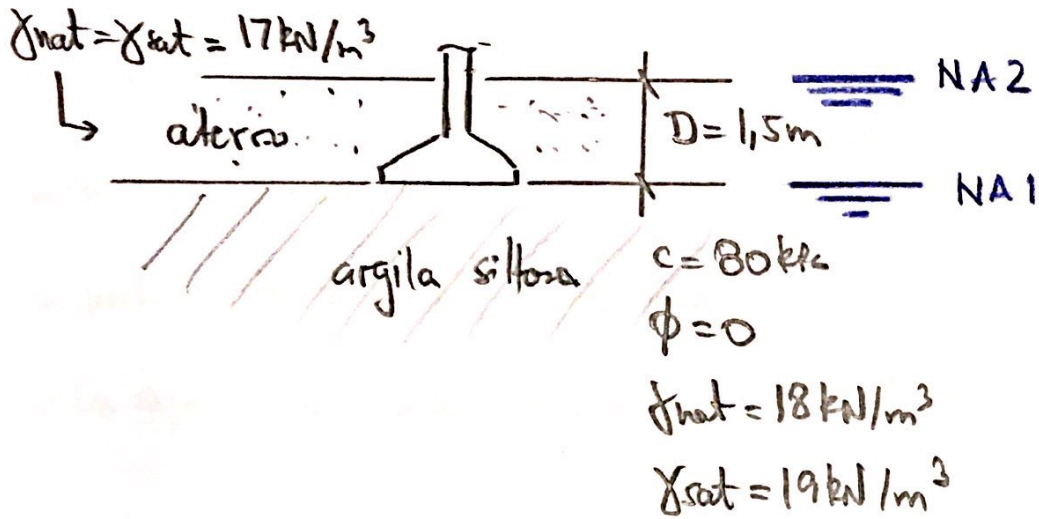 γnat = γsat = 17 kN/m³
NA2
aterro
D = 1,5m
NA1
argila siltosa
c = 80 kPa
ϕ = 0
γnat = 18 kN/m³
γsat = 19 kN/m³